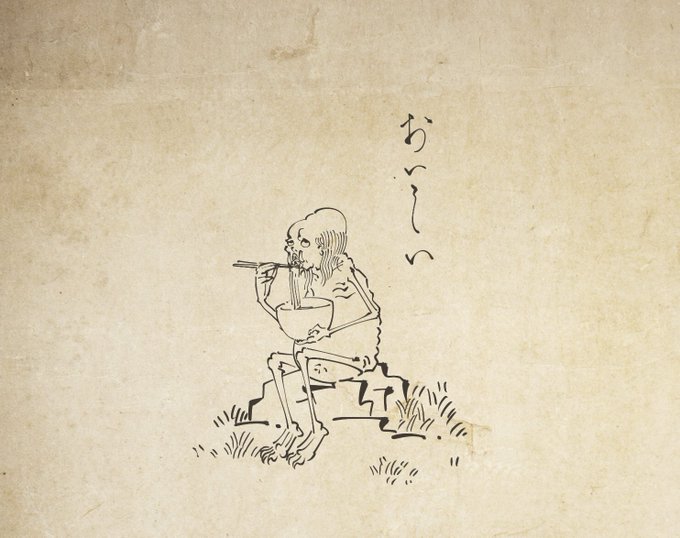 おいしい